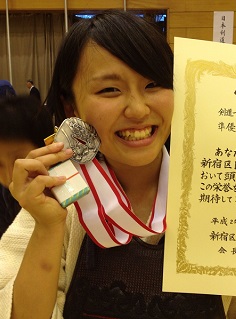 日本剣道
剣道一
準優
あなた
新宿区
おいて頭
この栄誉を
期待して
平成2
新宿区
会長